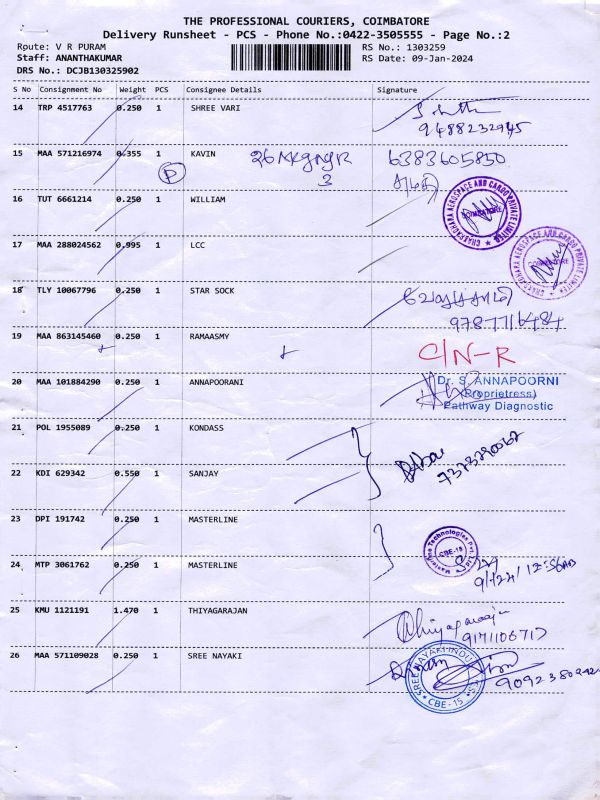 THE PROFESSIONAL COURIERS, COIMBATORE
Delivery Runsheet - PCS - Phone No.:0422-3505555 - Page No.:2
Route: V R PURAM
RS No.: 1303259
Staff: ANANTHAKUMAR
RS Date: 09-Jan-2024
DRS No.: DCJB130325902
S No Consignment No Weight PCS Consignee Details Signature
14 TRP 4517763 0.250 1 SHREE VARI
9488232945
15 MAA 571216974 0.355 1 KAVIN 6383605850
P 3
16 TUT 6661214 0.250 1 WILLIAM
CHAKRADHARA AEROSPACE AND CARGO PRIVATE LIMITED
COIMBATORE
17 MAA 288024562 0.995 1 LCC
CHAKRADHARA AEROSPACE AND CARGO PRIVATE LIMITED
18 TLY 10067796 0.250 1 STAR SOCK
9787716484
19 MAA 863145460 0.250 1 RAMAASMY C/N-R
20 MAA 101884290 0.250 1 ANNAPOORANI Dr. S. ANNAPOORNI
(Proprietress)
Pathway Diagnostic
21 POL 1955089 0.250 1 KONDASS
22 KDI 629342 0.550 1 SANJAY
23 DPI 191742 0.250 1 MASTERLINE
Masterline Technologies Pvt. Ltd.
CBE-15
24 MTP 3061762 0.250 1 MASTERLINE
25 KMU 1121191 1.470 1 THIYAGARAJAN Thiyagaraajan
26 MAA 571109028 0.250 1 SREE NAYAKI
SREE NAYAKI
CBE-15